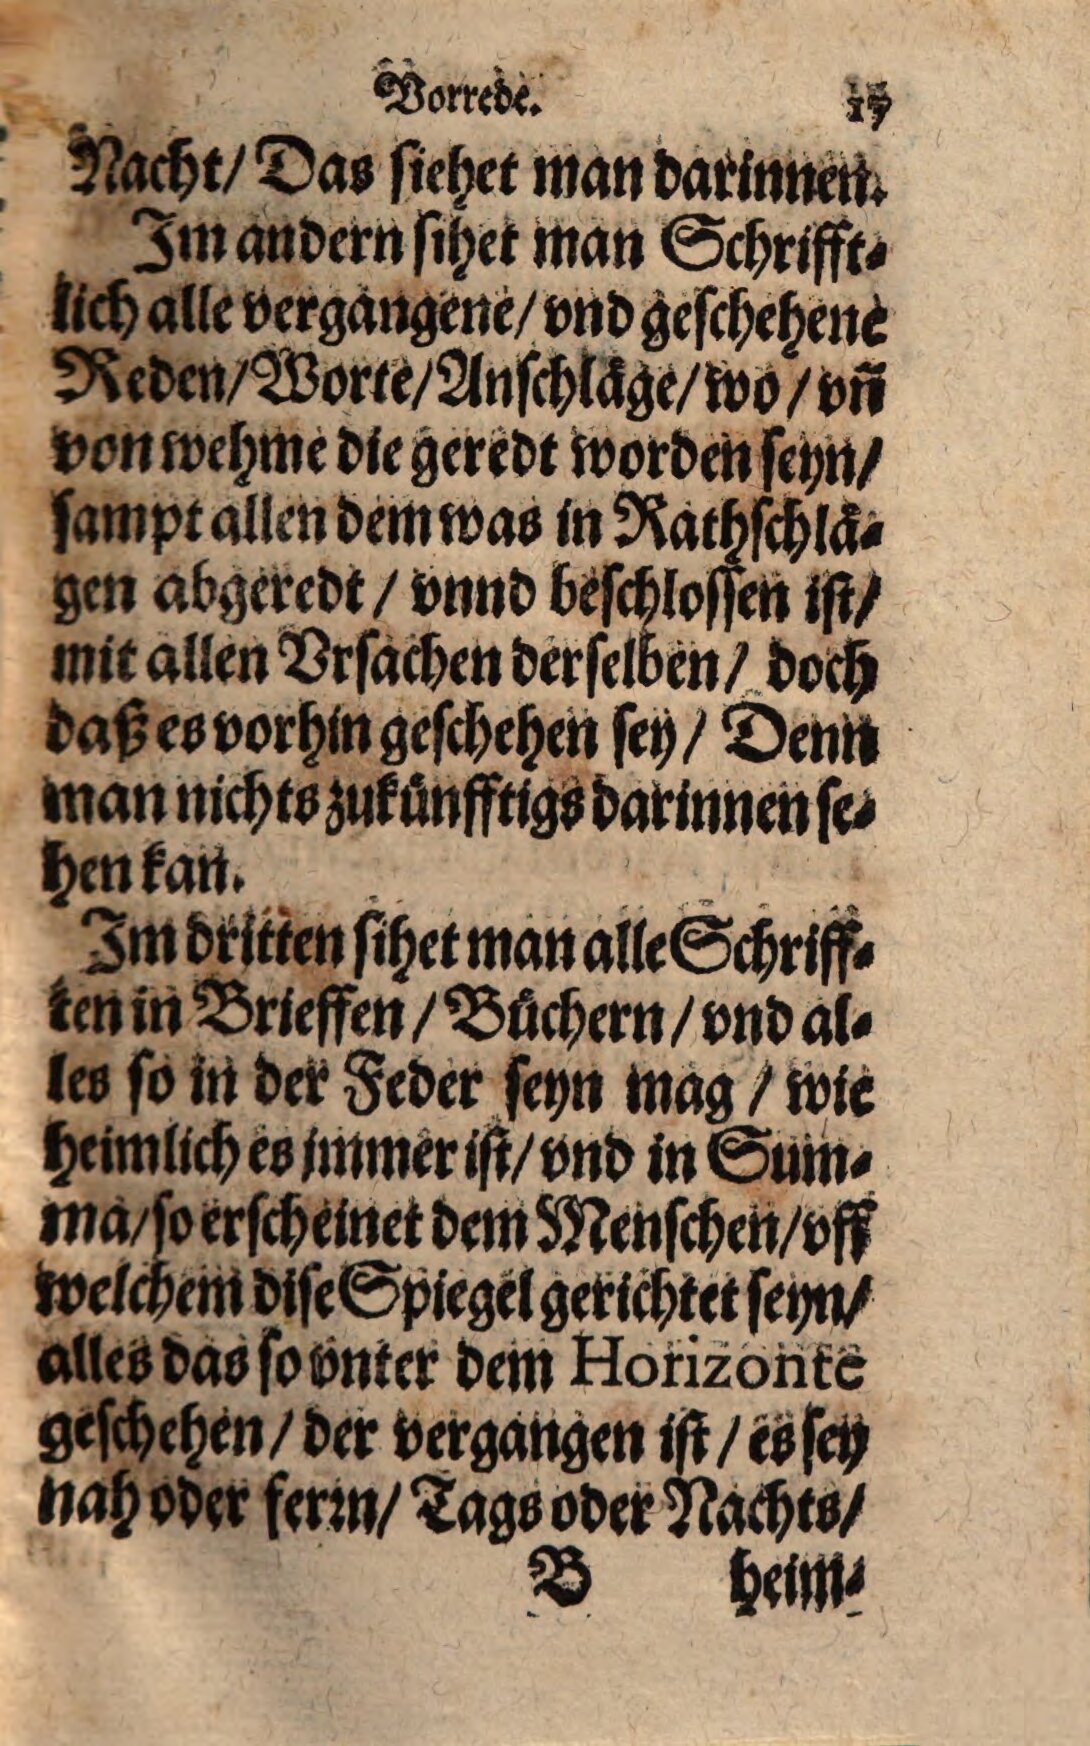 Vorrede. 17
Nacht/ Das siehet man darinnen.
Im andern sihet man Schrifft⸗
lich alle vergangene/ vnd geschehene
Reden/ Worte/ Anschlaͤge/ wo / vñ
von wehme die geredt worden seyn/
sampt allen dem was in Rathschlaͤ⸗
gen abgeredt / vnnd beschlossen ist/
mit allen Vrsachen derselben/ doch
daß es vorhin geschehen sey/ Denn
man nichts zukuͤnfftigs darinnen se⸗
hen kan.
Im dritten sihet man alle Schriff⸗
ten in Brieffen / Buͤchern / vnd al⸗
les so in der Feder seyn mag / wie
heimlich es jmmer ist/ vnd in Sum⸗
ma/ so erscheinet dem Menschen/ vff
welchem dise Spiegel gerichtet seyn/
alles das so vnter dem Horizonte
geschehen / der vergangen ist / es sey
nah oder ferꝛn/ Tags oder Nachts/
B heim⸗